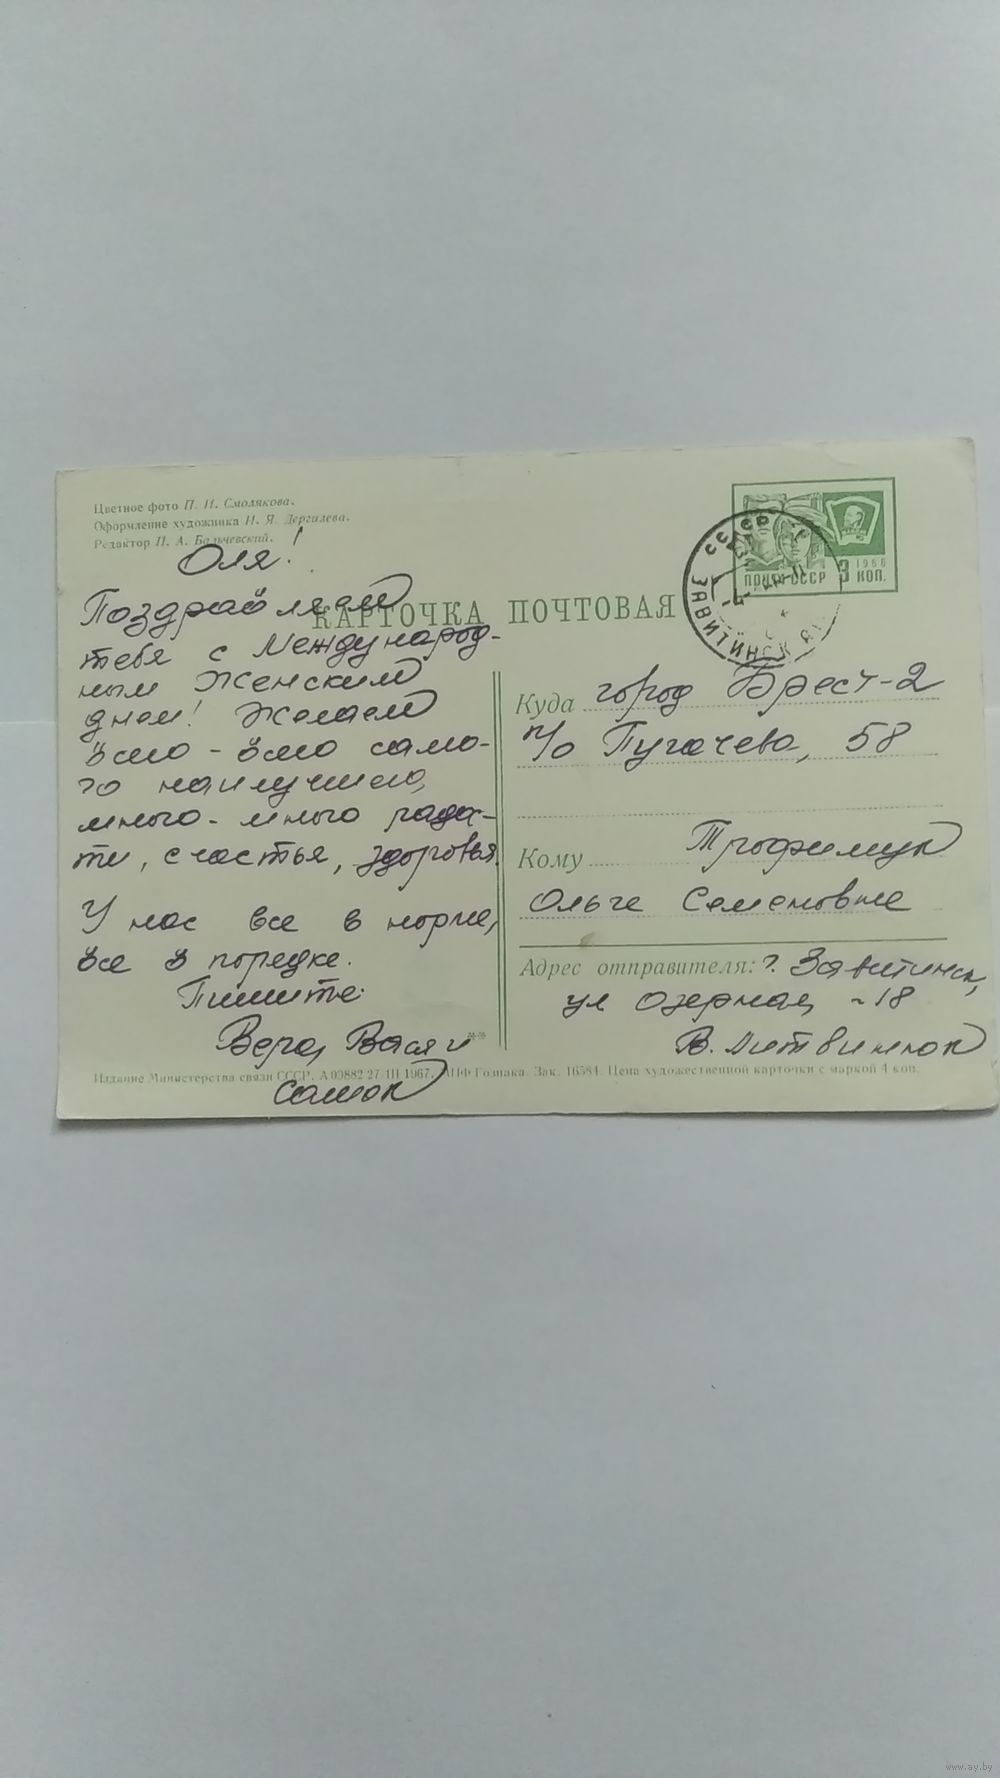 Цветное фото П. И. Смолякова.
Оформление художника И. Я. Дергилева.
Редактор П. А. Бальчевский.
Оля!
Поздравляем
тебя с Международ-
ным Женским
днем! Желаем
всего - всего само-
го наилучшего,
много - много радос-
ти, счастья, здоровья.
У нас все в норме,
все в порядке.
Пишите.
Вера, Вася и
Сашок
КАРТОЧКА ПОЧТОВАЯ
ПОЧТА СССР 3 КОП.
1966
СССР
ЗАВИТИНСК
Куда город Брест-2
п/о Пугачево, 58
Кому Трофимук
Ольге Семеновне
Адрес отправителя: г. Завитинск,
ул Озерная, 18
В. Литвинюк
Издание Министерства связи СССР. А 00882 27/III 1967. МПФ Гознака. Зак. 16584. Цена художественной карточки с маркой 4 коп.
www.ay.by